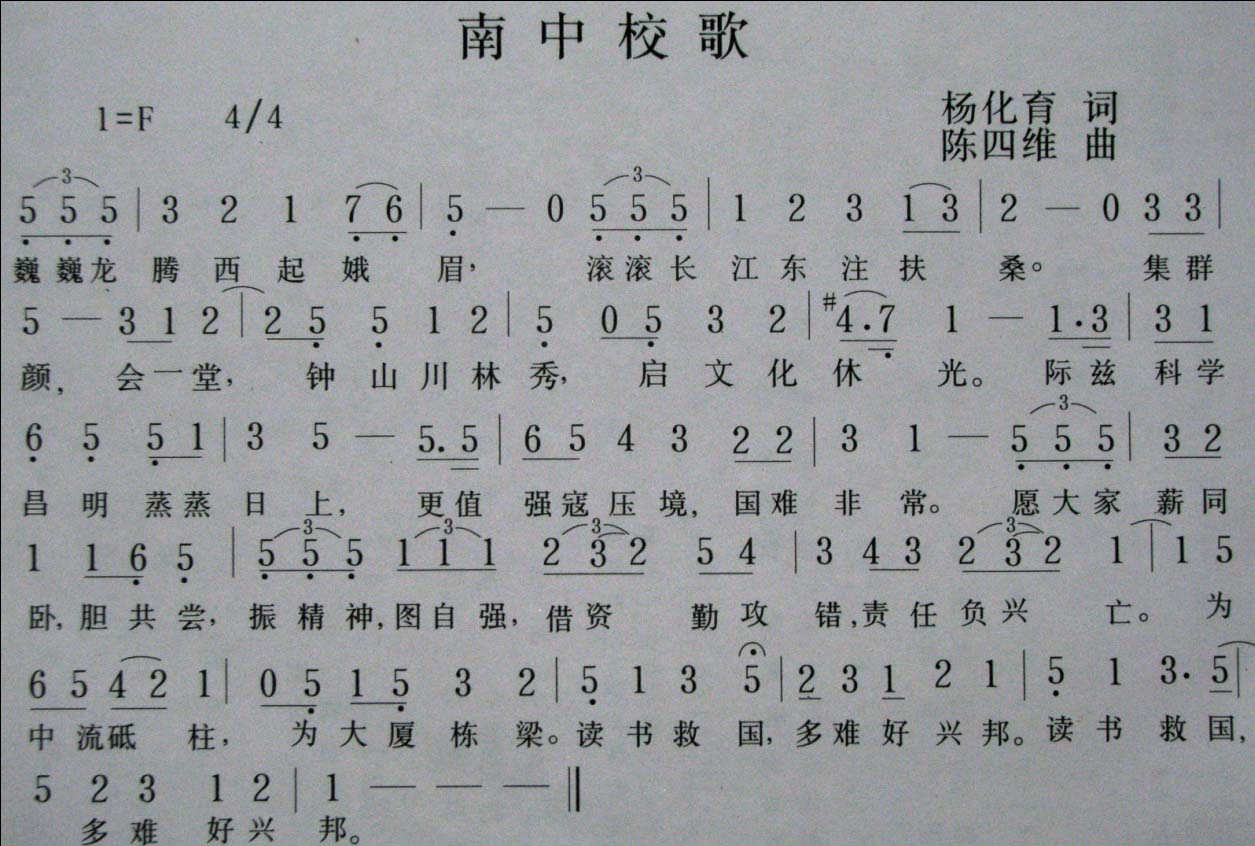 南中校歌
1=F 4/4
杨化育 词
陈四维 曲
3 3
5 5 5 | 3 2 1 7 6 | 5 — 0 5 5 5 | 1 2 3 1 3 | 2 — 0 3 3 |
巍巍龙腾西起娥眉，滚滚长江东注扶桑。集群
5 — 3 1 2 | 2 5 5 1 2 | 5 0 5 3 2 | #4.7 1 — 1.3 | 3 1
颜，会一堂，钟山川林秀，启文化休光。际兹科学
3
6 5 5 1 | 3 5 — 5.5 | 6 5 4 3 2 2 | 3 1 — 5 5 5 | 3 2
昌明蒸蒸日上，更值强寇压境，国难非常。愿大家薪同
3 3 3 3
1 1 6 5 | 5 5 5 1 1 1 2 3 2 5 4 | 3 4 3 2 3 2 1 | 1 5
卧，胆共尝，振精神，图自强，借资勤攻错，责任负兴亡。为
6 5 4 2 1 | 0 5 1 5 3 2 | 5 1 3 5 | 2 3 1 2 1 | 5 1 3. 5 |
中流砥柱，为大厦栋梁。读书救国，多难好兴邦。读书救国，
5 2 3 1 2 | 1 — — — ‖
多难好兴邦。